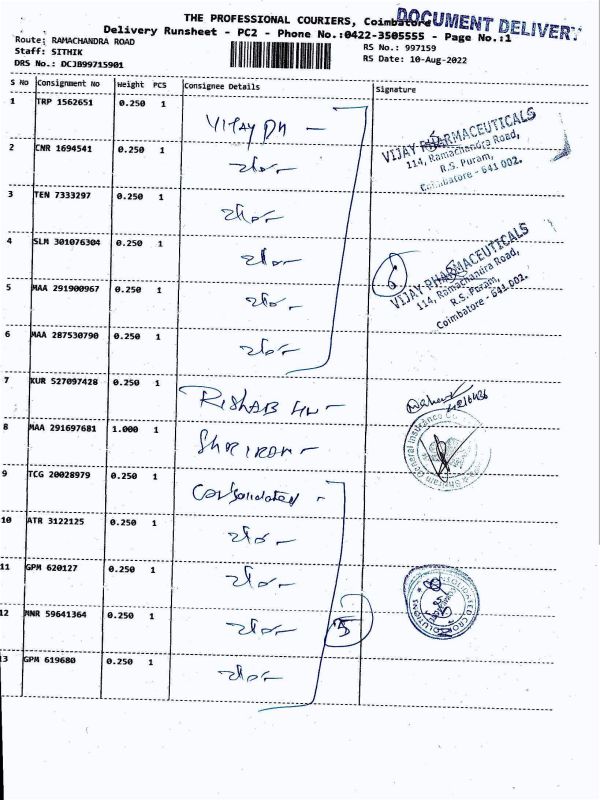 THE PROFESSIONAL COURIERS, Coimbatore
DOCUMENT DELIVERY
Delivery Runsheet - PC2 - Phone No.:0422-3505555 - Page No.:1
Route: RAMACHANDRA ROAD
RS No.: 997159
Staff: SITHIK
RS Date: 10-Aug-2022
DRS No.: DCJB99715901
S No Consignment No Weight PCS Consignee Details Signature
1 TRP 1562651 0.250 1
VIJAY PH
VIJAY PHARMACEUTICALS
114, Ramachandra Road,
R.S. Puram,
Coimbatore - 641 002.
2 CNR 1694541 0.250 1
3 TEN 7333297 0.250 1
4 SLM 301076304 0.250 1
6
VIJAY PHARMACEUTICALS
114, Ramachandra Road,
R.S. Puram,
Coimbatore - 641 002.
5 MAA 291900967 0.250 1
6 MAA 287530790 0.250 1
7 KUR 527097428 0.250 1
RISHAB
8 MAA 291697681 1.000 1
SHRIRAM
Shriram General Insurance
9 TCG 20028979 0.250 1
Consolidated
10 ATR 3122125 0.250 1
11 GPM 620127 0.250 1
12 MNR 59641364 0.250 1
5
13 GPM 619680 0.250 1